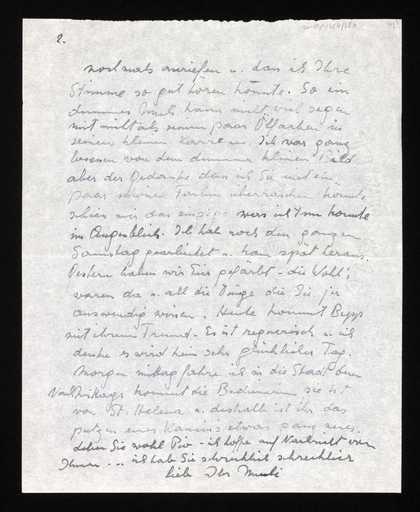 2.
nochmals anriefen u. dass ich Ihre
Stimme so gut hören konnte. So ein
dummes kann nicht viel sagen
mit nicht als seinen paar Ölfarben in
seinem kleinen. Ich war ganz
besessen von dem dummen kleinen Bild
aber der Gedanke dass ich Sie mit ein
paar schönen Farben überraschen konnte
schien mir das einzige was ich tun konnte
im Augenblick. Ich hab noch den ganzen
Samstag gearbeitet u. kam spät heraus.
Gestern haben wir Eier gefärbt - die
waren da u. all die Dinge die Sie ja
auswendig wissen. Heute kommt
mit ihrem Freund. Es ist regnerisch u. ich
denke es wird kein sehr glücklicher Tag.
Morgen mittag fahre ich in die Stadt denn
Nachmittags kommt die Bedienerin sie ist
von St. Helena u. deshalb ist ihr das
putzen eines etwas ganz
Leben Sie wohl - ich hoffe auf Nachricht von
Ihnen - .. ich hab Sie schrecklich schrecklich
lieb Ihr